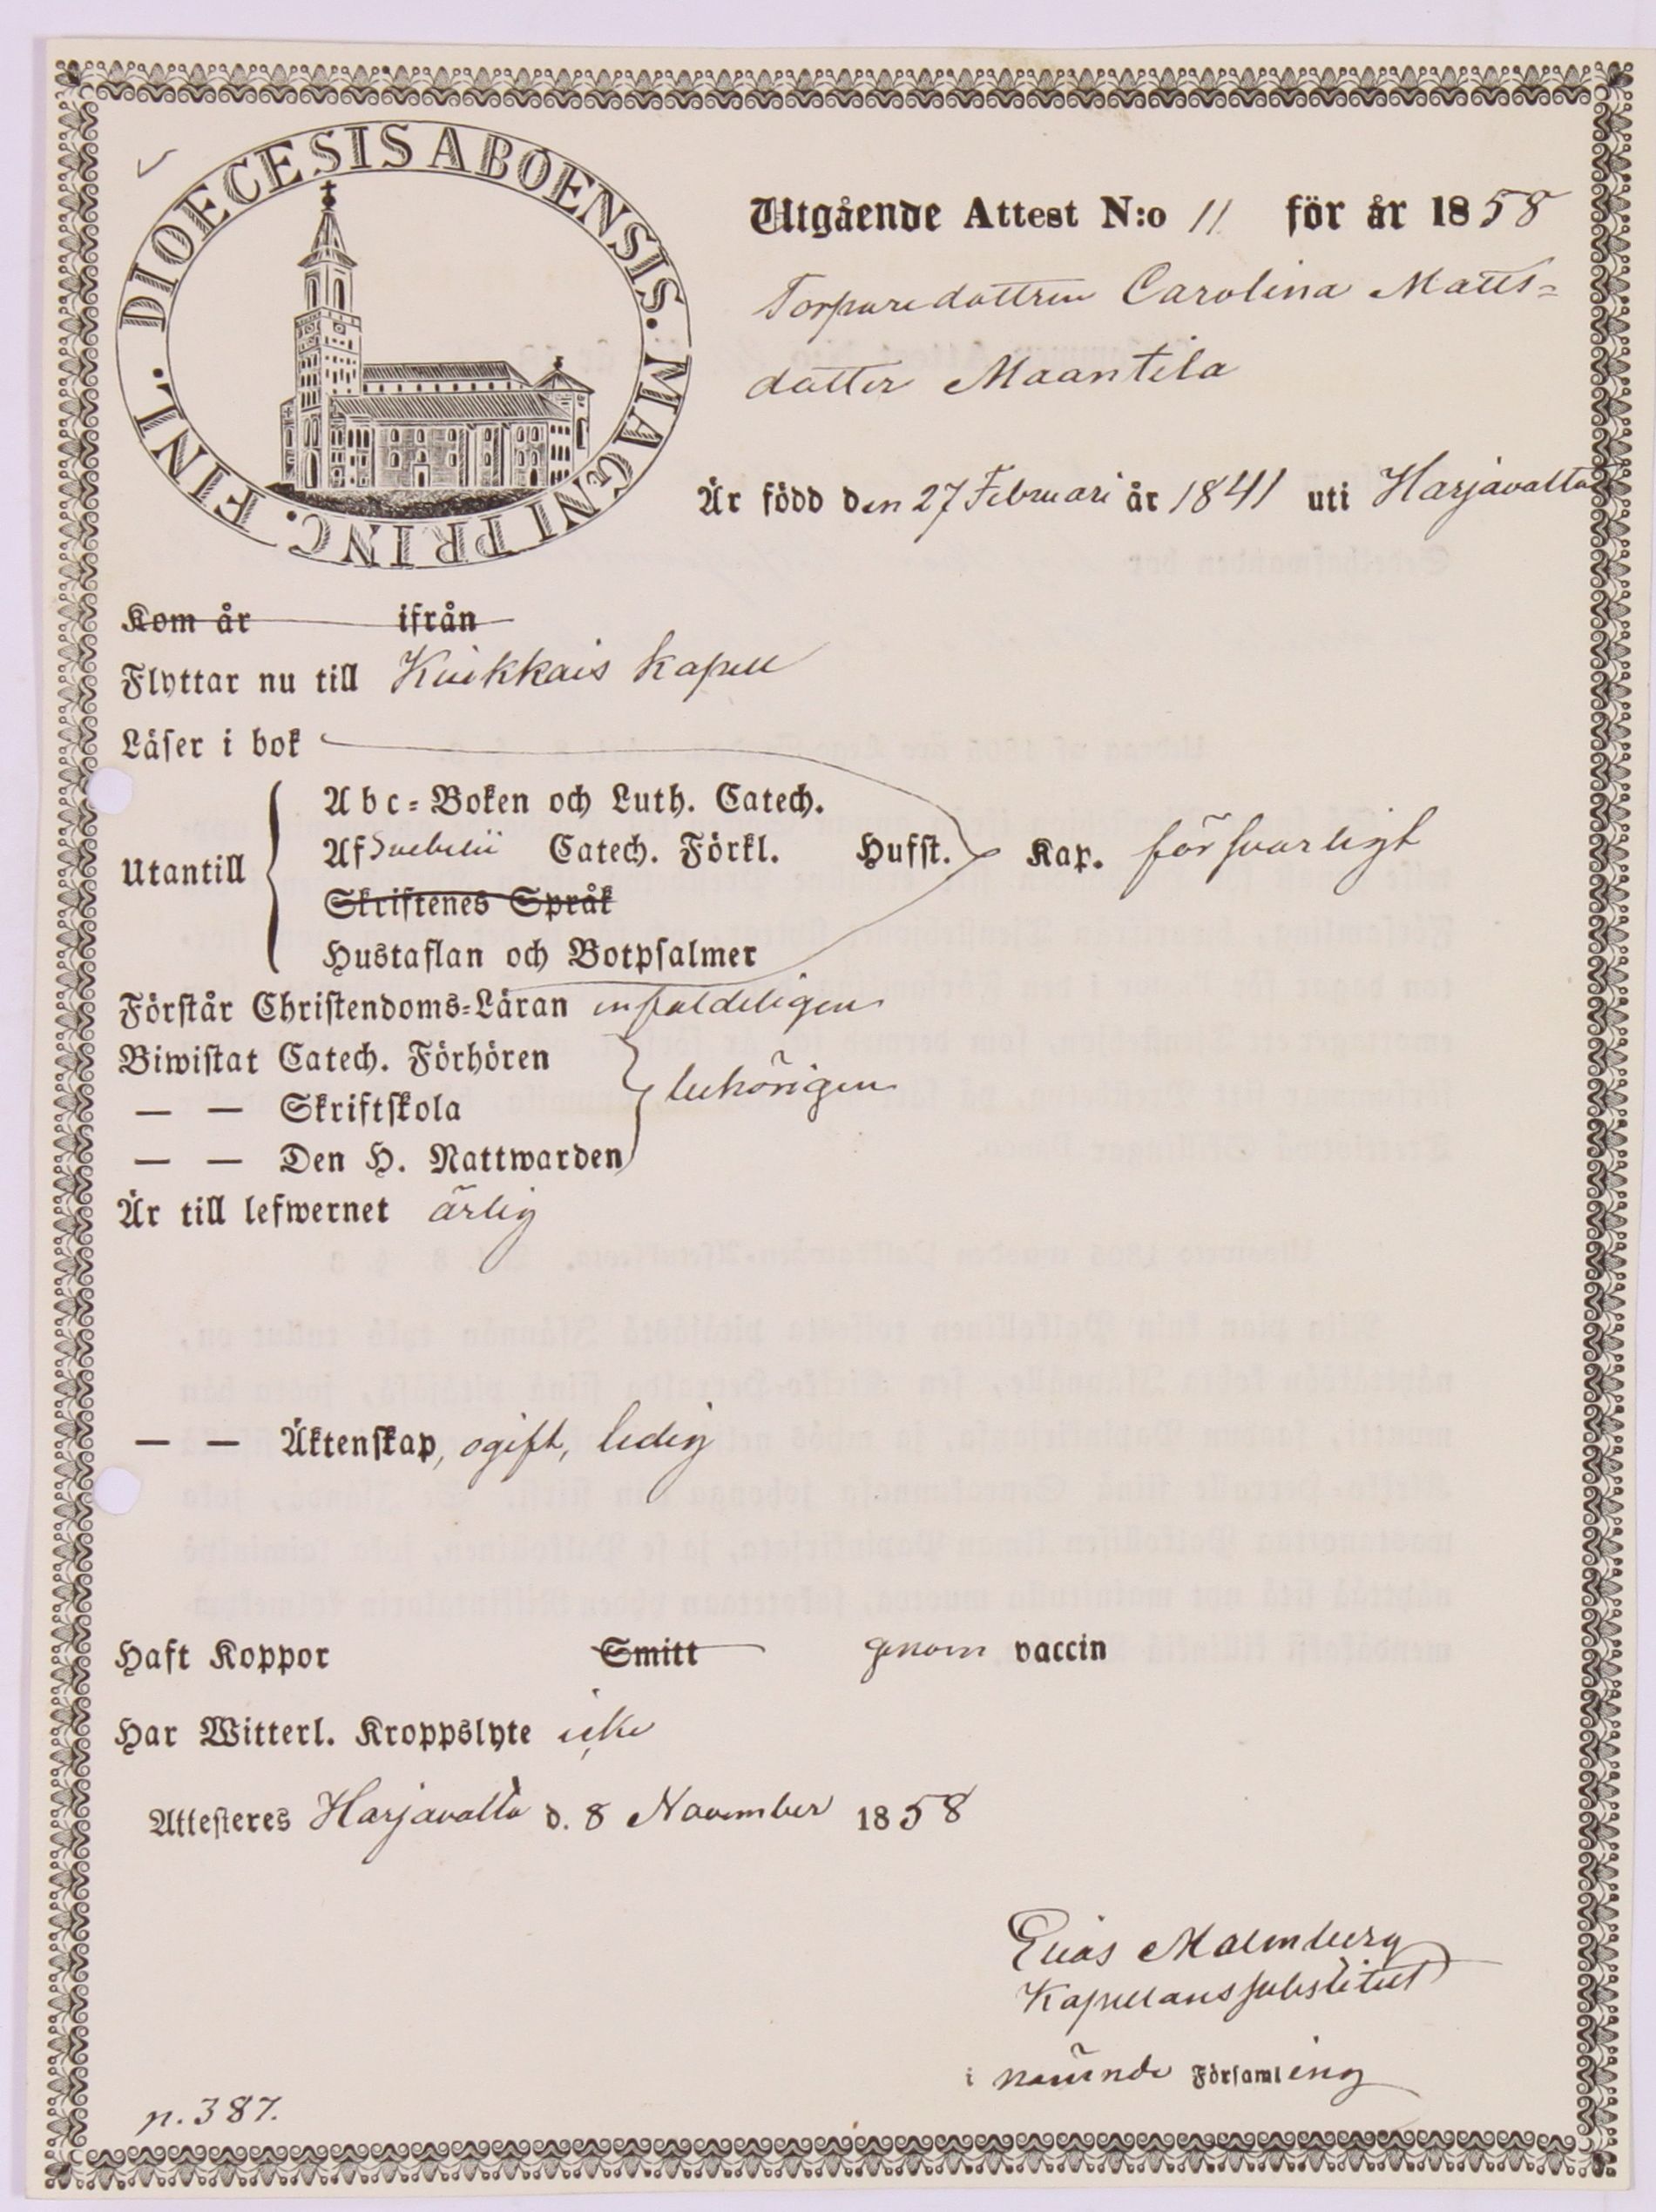 DIOECESIS ABOENSIS. MAGNI PRINC. FINL.
Utgående Attest N:o 11 för år 1858
Torparedottren Carolina Matts=
dotter Maantila
Är född den 27 Februari år 1841 uti Harjavalta
Kom år ifrån
Flyttar nu till Kiukkais Kapell
Läser i bok
Utantill
Abc=Boken och Luth. Catech.
Af Svebelii Catech. Förkl. Hufst. Kap. försvarligt
Skriftenes Språk
Hustaflan och Botpsalmer
Förstår Christendoms=Läran enfaldeligen
Biwistat Catech. Förhören
— — Skriftskola behörigen
— — Den H. Nattwarden
Är till lefwernet ärlig
— — Äktenskap, ogift, ledig
Haft Koppor Smitt genom vaccin
Har Witterl. Kroppslyte icke
Attesteres Harjavalta d. 8 November 1858
Elias Malmberg
Kapellanssubstitut
i nämnde Församling
p. 387.